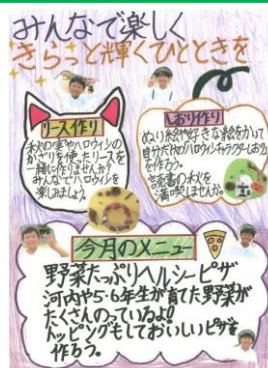 みんなで楽しく
きらっと輝くひとときを
リース作り
木の実やハロウィンの
かざりを使ったリースを
一緒に作りませんか?
みんなでハロウィンを
楽しみましょう。
しおり作り
ぬり絵や好きな絵をかいて
自分だけのハロウィンキャラクターしおり
を作ろう。
読書の秋を
満喫しませんか。
今月のメニュー
野菜たっぷりヘルシーピザ
河内や5・6年生が育てた野菜が
たくさんのっているよ!
トッピングもしておいしいピザを
作ろう。